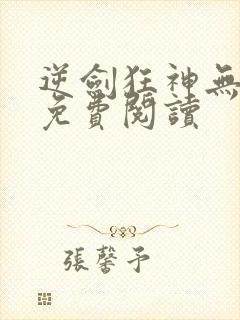 逆劍狂神無
免費閱讀
張馨予